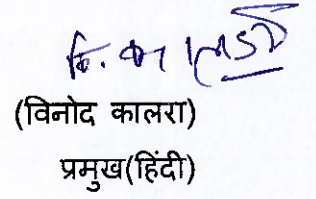 (विनोद कालरा)
प्रमुख(हिंदी)